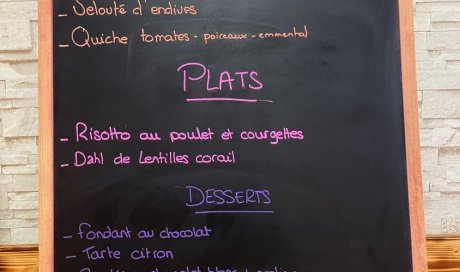 _ Velouté d'endives
_ Quiche tomates - poireaux - emmental
PLATS
_ Risotto au poulet et courgettes
_ Dahl de Lentilles corail
DESSERTS
_ Fondant au chocolat
_ Tarte citron
chocolat blanc